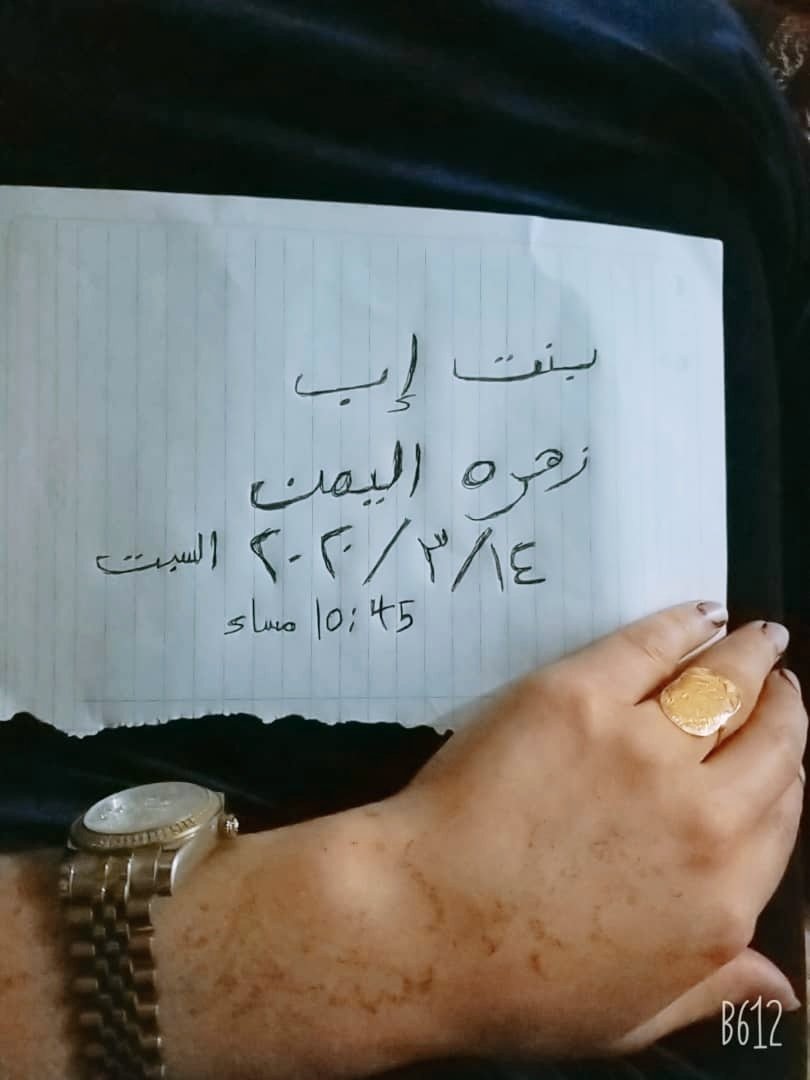 بنت إب
زهره اليمن
١٤/٣/٢٠٢٠ السبت
10:45 مساء
B612